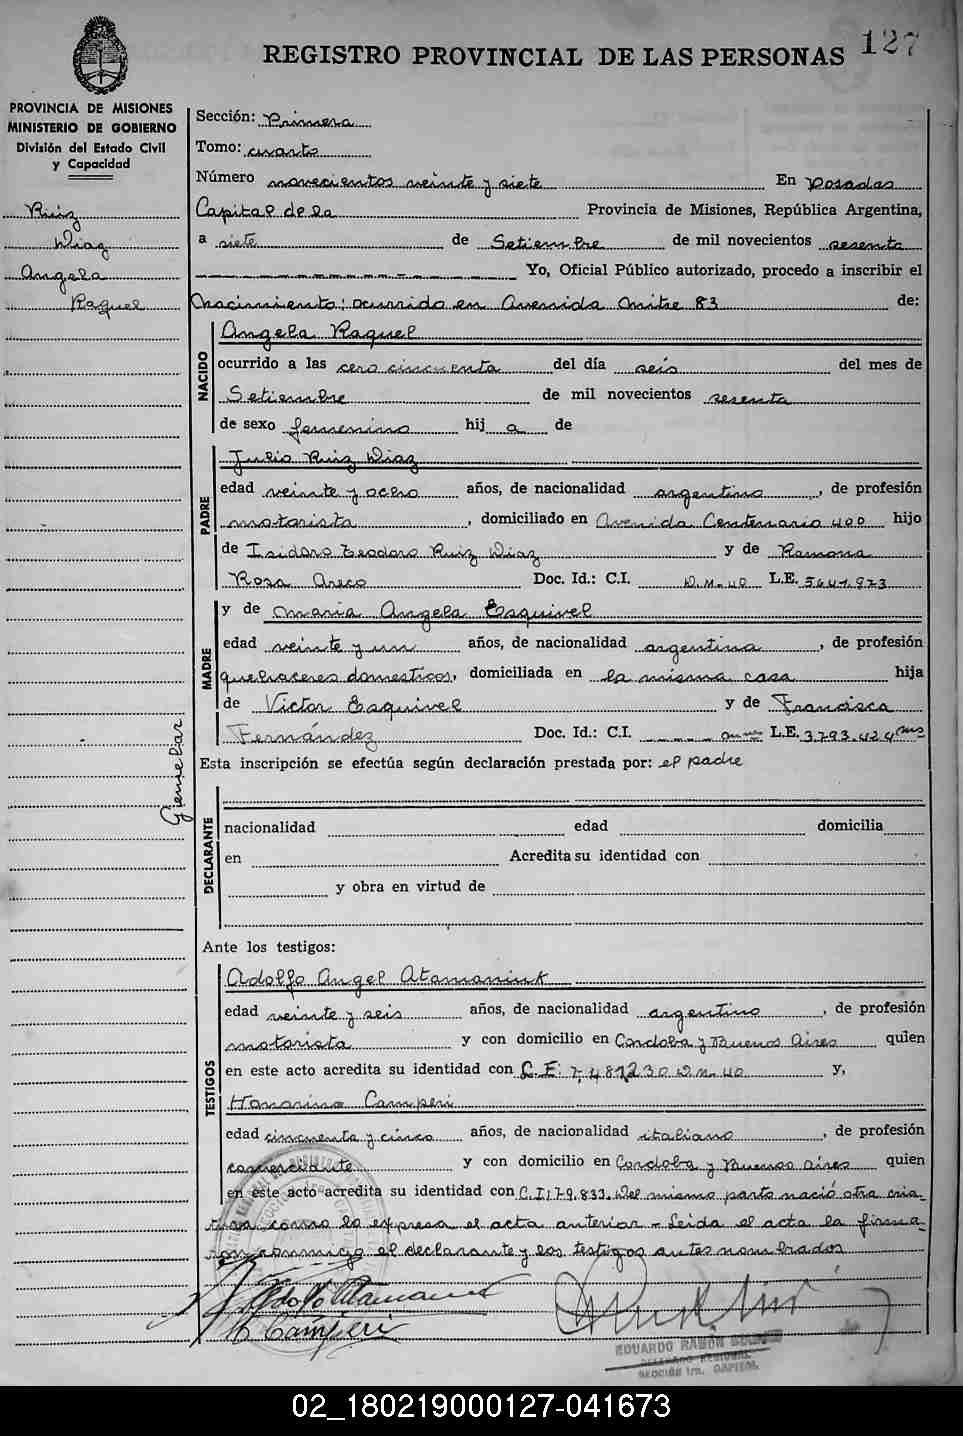 127
REGISTRO PROVINCIAL DE LAS PERSONAS
PROVINCIA DE MISIONES
MINISTERIO DE GOBIERNO
División del Estado Civil
y Capacidad
Ruiz
Diaz
Angela
Raquel
Gemeliar
Sección: Primera
Tomo: cuarto
Número novecientos veinte y siete En Posadas
Capital de la Provincia de Misiones, República Argentina,
a siete de Setiembre de mil novecientos sesenta
Yo, Oficial Público autorizado, procedo a inscribir el
Nacimiento: ocurrido en Avenida Mitre 83 de:
NACIDO
Angela Raquel
ocurrido a las cero cincuenta del día seis del mes de
Setiembre de mil novecientos sesenta
de sexo femenino hij a de
PADRE
Julio Ruiz Diaz
edad veinte y ocho años, de nacionalidad argentino, de profesión
motorista, domiciliado en Avenida Centenario 400 hijo
de Isidoro Teodoro Ruiz Diaz y de Ramona
Rosa Areco Doc. Id.: C.I. D.M. 40 L.E. 5641.973
MADRE
y de Maria Angela Esquivel
edad veinte y un años, de nacionalidad argentina, de profesión
quehaceres domesticos, domiciliada en la misma casa hija
de Victor Esquivel y de Francisca
Fernández Doc. Id.: C.I. L.E. 3793.424 Mns
Esta inscripción se efectúa según declaración prestada por: el padre
DECLARANTE
nacionalidad edad domicilia
en Acredita su identidad con
y obra en virtud de
Ante los testigos:
TESTIGOS
Adolfo Angel Atamaniuk
edad veinte y seis años, de nacionalidad argentino, de profesión
motorista y con domicilio en Cordoba y Buenos Aires quien
en este acto acredita su identidad con L.E: 7,481230 D.M. 40 y,
Honorino Camperi
edad cincuenta y cinco años, de nacionalidad italiano, de profesión
comerciante y con domicilio en Cordoba y Buenos Aires quien
en este acto acredita su identidad con C.I 179.833. Del mismo parto nació otra cria-
tura como lo expresa el acta anterior - Leida el acta la firma-
ron conmigo el declarante y los testigos antes nombrados
Adolfo Atamaniuk
C Camperi
EDUARDO RAMÓN
DELEGADO REGIONAL
SECCIÓN 1ra. CAPITAL
02_180219000127-041673